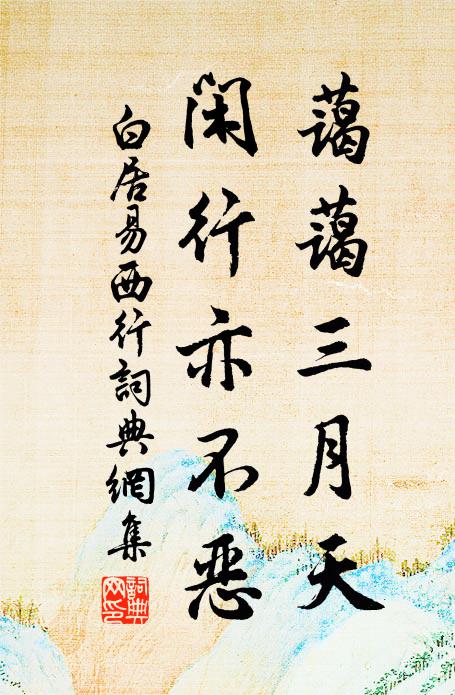 蔼蔼三月天
闲行亦不恶
白居易西行詞典網集
詞典